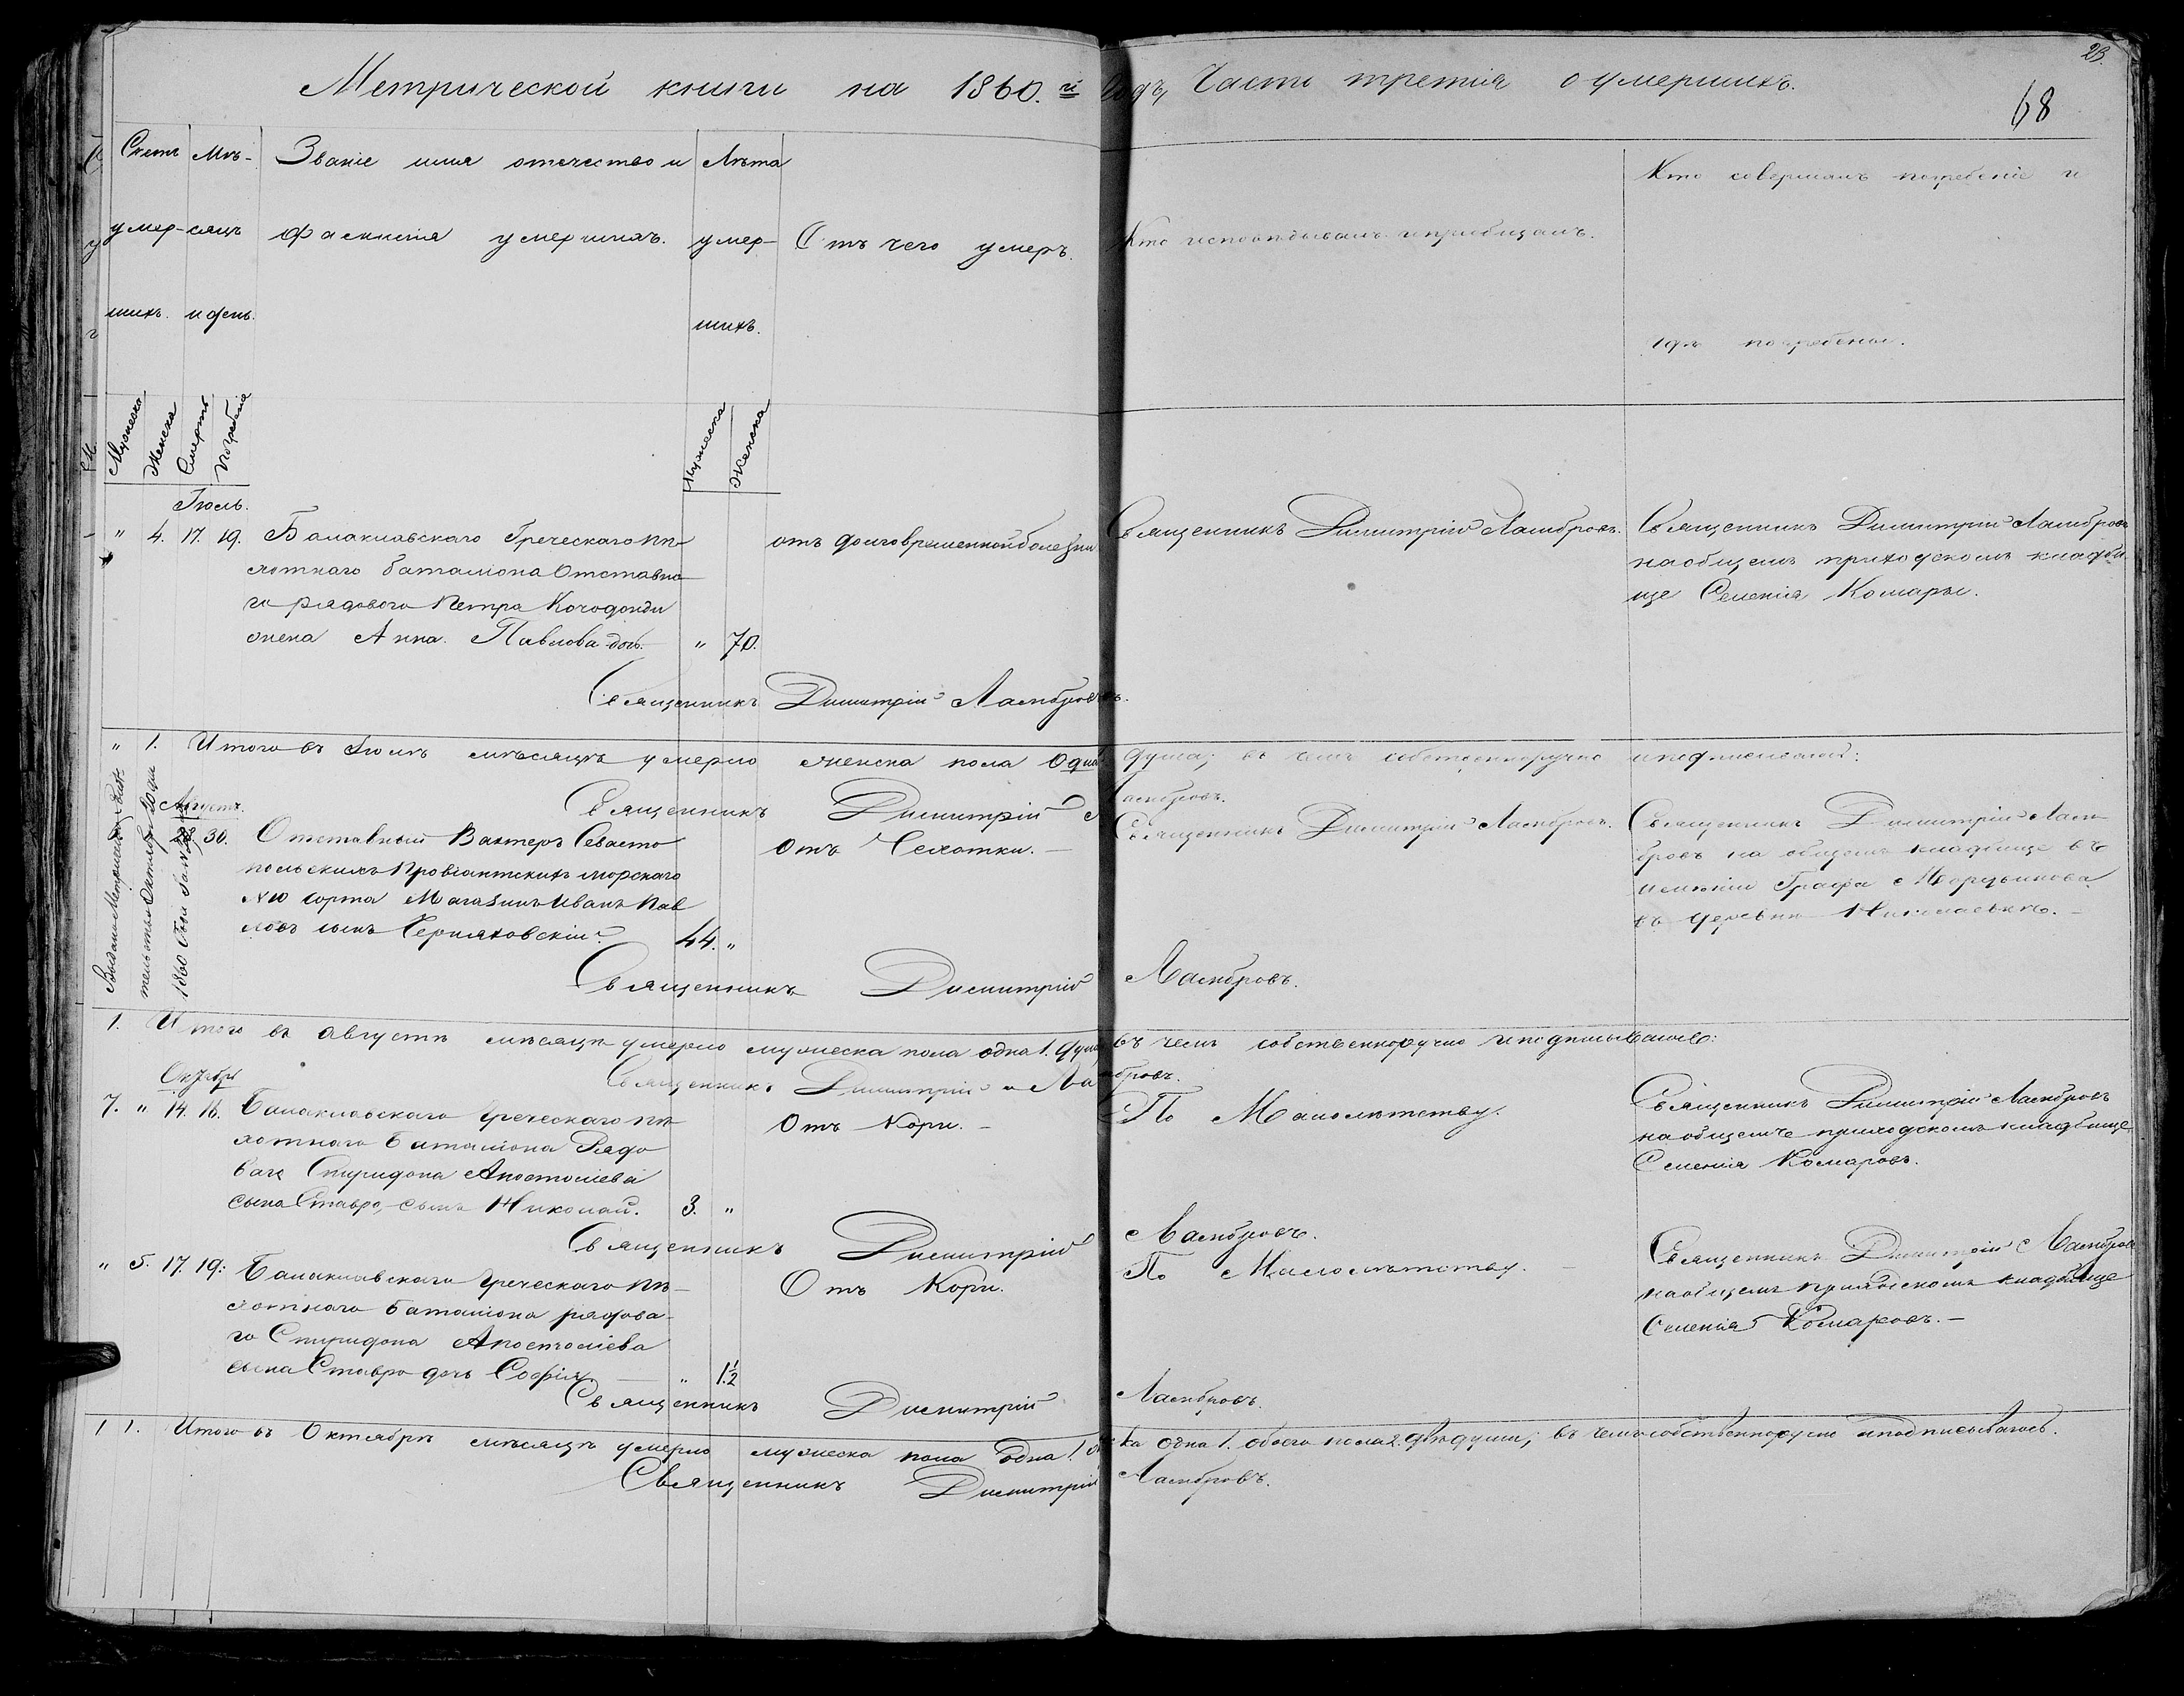 23.
68
Метрической книги на 1860.й Годъ, Часть третія о умершихъ.
Счетъ умер-шихъ.
Мѣ-сяцъ и день.
Званіе имя отечество и фамилія умершихъ.
Лѣта умер-шихъ.
Отъ чего умеръ.
Кто исповѣдывалъ и пріобщалъ.
Кто совершалъ погребеніе и
гдѣ погребены.
Мужеска
Женска
Смерть
Погребенія
Мужеска
Женска
Іюль.
" 4. 17. 19. Балаклавскаго Греческаго пѣ-
хотнаго баталіона Отставна-
го рядоваго Петра Кочодонди
жена Анна Павлова дочь. " 70.
отъ долговременной болезни
Священникъ Димитрій Ламбровъ.
Священникъ Димитрій Ламбровъ
на общемъ приходскомъ кладби
ще Селенія Комары.
Священникъ Димитрій Ламбровъ.
" 1. Итого въ Іюлѣ мѣсяцѣ умерло женска пола Одна душа; въ чемъ собственноручно и подписался:
Священникъ Димитрій Ламбровъ.
Выдано Метрическое
тельство Октября 10 дня
1860 года за №
Августъ.
28 30. Отставный Вахтеръ Севасто
польскихъ Провіантскихъ морскаго
Магазинъ Иванъ Пав
ловъ сынъ Черняховскій. 44. "
Отъ Чехотки. —
Священникъ Димитрій Ламбровъ.
Священникъ Димитрій Лам-
бровъ на общемъ кладбище въ
имѣніи Графа Мордвинова
въ деревни Николаевкѣ. —
Священникъ Димитрій Ламбровъ.
1. Итого въ Августѣ мѣсяцѣ умерло мужеска пола одна 1. душа въ чемъ собственноручно и подписывалсѣ:
Священникъ Димитрій Ламбровъ.
Октябрь
7. " 14. 16. Балаклавскаго Греческаго пѣ-
хотнаго баталіона Рядо
ваго Спиридона Апостоліева
сына Ставро, сынъ Николай. 3. "
Отъ Кори. —
По Малолѣтству.
Священникъ Димитрій Ламбровъ
на общемъ приходскомъ кладбище
Селенія Комаровъ.
Священникъ Димитрій Ламбровъ.
" 5. 17. 19: Балаклавскаго Греческаго пѣ-
хотнаго баталіона рядова-
го Спиридона Апостоліева
сына Ставро дочь Софія. — " 1.½
Отъ Кори.
По Малолѣтству. —
Священникъ Димитрій Ламбровъ
на общемъ приходскомъ кладбище
Селенія Комаровъ. —
Священникъ Димитрій Ламбровъ.
1 1. Итого въ Октябрѣ мѣсяцѣ умерло мужеска пола одна 1. женска одна 1. обоего пола 2. двѣ души; въ чемъ собственноручно и подписывалсѣ.
Священникъ Димитрій Ламбровъ.